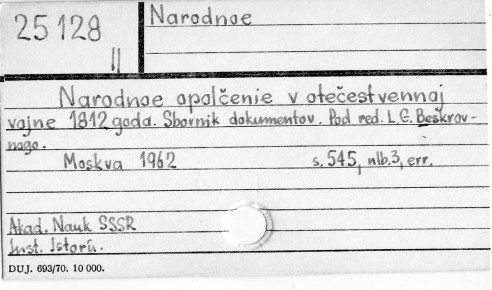 25128
II
Narodnoe
Narodnoe opolčenie v otečestvennoj
vojne 1812 goda. Sbornik dokumentov. Pod red. L.G. Beskrov-
nago.
Moskva 1962 s. 545, nlb.3, err.
Akad. Nauk SSSR
Inst. Istorii.
DUJ. 693/70. 10 000.